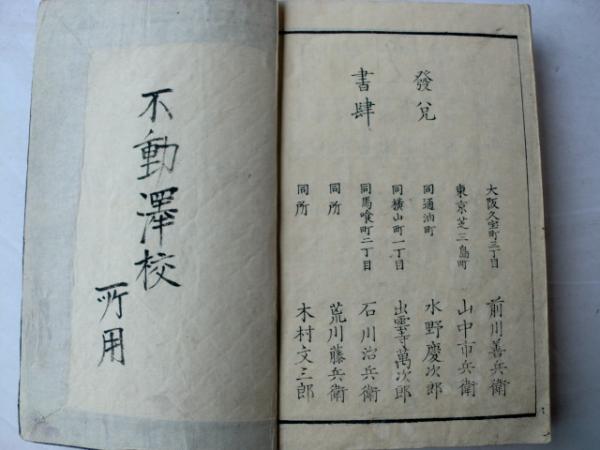 發兌
書肆
大阪久宝町三丁目 前川善兵衛
東京芝三島町 山中市兵衛
同通油町 水野慶次郎
同横山町一丁目 出雲寺萬次郎
同馬喰町二丁目 石川治兵衛
同所 荒川藤兵衛
同所 木村文三郎
不動澤校
所用